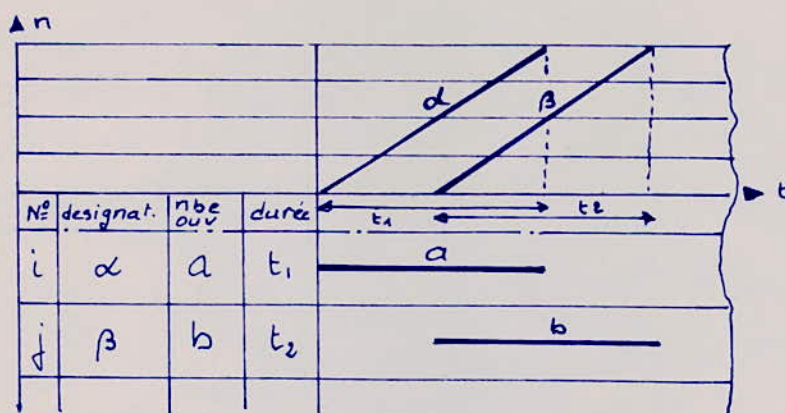 n
α β
t
t1 t2
N° designat. nbe ouv durée
i α a t1 a
j β b t2 b